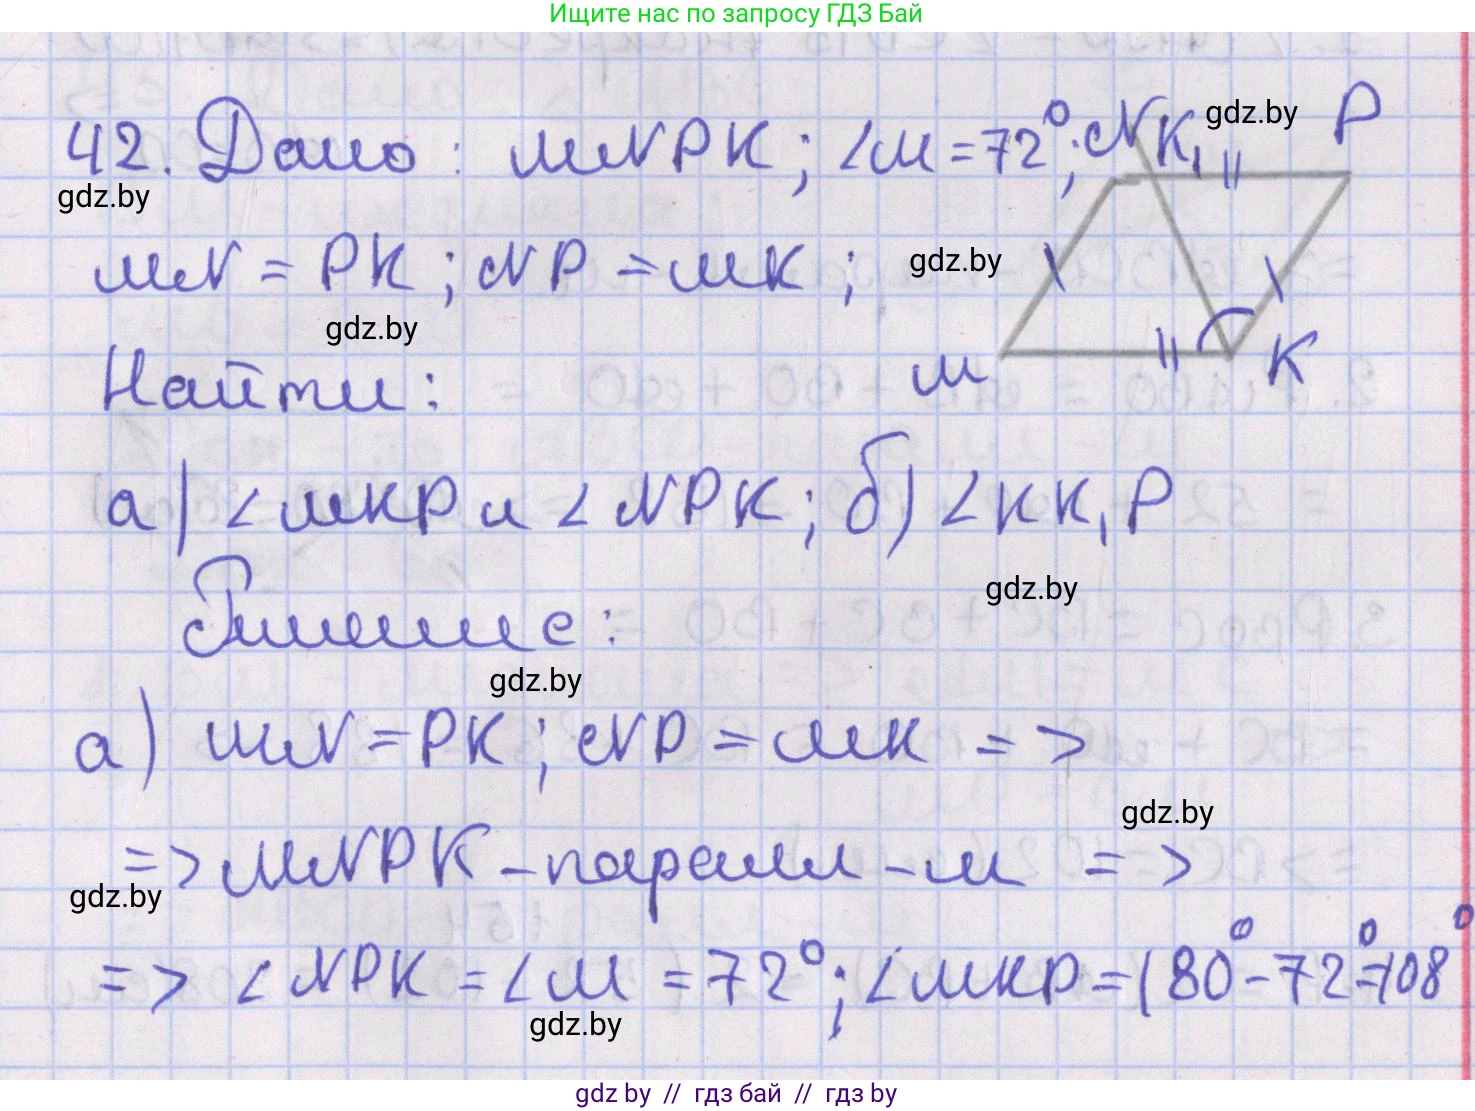 Ищите нас по запросу ГДЗ Бай
42. Дано: MNPK; ∠M = 72°;
N K₁ gdz.by P
gdz.by
MN = PK; NP = MK;
gdz.by
gdz.by
Найти:
M K
а) ∠MKP и ∠NPK; б) ∠KK₁P
gdz.by
Решение:
gdz.by
а) MN = PK; NP = MK =>
gdz.by
=> MNPK - паралл-м =>
gdz.by
=> ∠NPK = ∠M = 72°; ∠MKP = 180° - 72° = 108°
gdz.by
gdz.by // гдз бай // гдз by